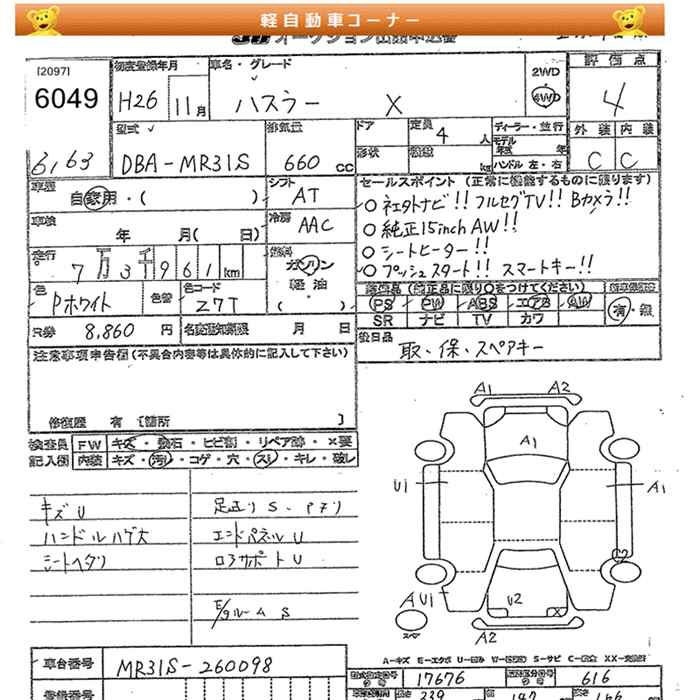 軽自動車コーナー
[2097]
6049
初度登録年月
H26 11月
車名・グレード
ハスラー X
2WD
4WD
評価点
4
外装 内装
C C
6,63
型式
DBA-MR31S
排気量
660 cc
ドア
定員
4 人
形状
ディーラー・並行
モデル
年式 年
ハンドル 左・右
車歴
自家用・( )
シフト
AT
車検
年 月( 日)
冷房
AAC
走行
7万3千961km
燃料
ガソリン
軽油
( )
色
Pホワイト
色替
色コード
Z7T
R券 8,860 円
名変期限 月 日
セールスポイント(正常に機能するものに限ります)
○ ネェタトナビ!! フルセグTV!! Bカメラ!!
○ 純正15inch AW!!
○ シートヒーター!!
○ プッシュスタート!! スマートキー!!
装備品(純正品に限り○をつけてください)
PS PW ABS エアB AW
SR ナビ TV カワ
有・無
後日品
取・保・スペアキー
注意事項申告欄(不具合内容等は具体的に記入して下さい)
修復歴 有 [箇所 ]
検査員 FW キズ・飛石・ヒビ割・リペア跡・×要
記入欄 内装 キズ・汚れ・コゲ・穴・スレ・キレ・破レ
キズU
ハンドルハゲ大
シートヘタリ
足廻りS、
エンドパネルU
ロアサポートU
E/gルームS
A1 A2
A1
U1
A1
AU1
U2
X
A2
スペア
車台番号
MR31S-260098
登録番号
A-キズ E-エクボ
S-サビ
17676
616
339